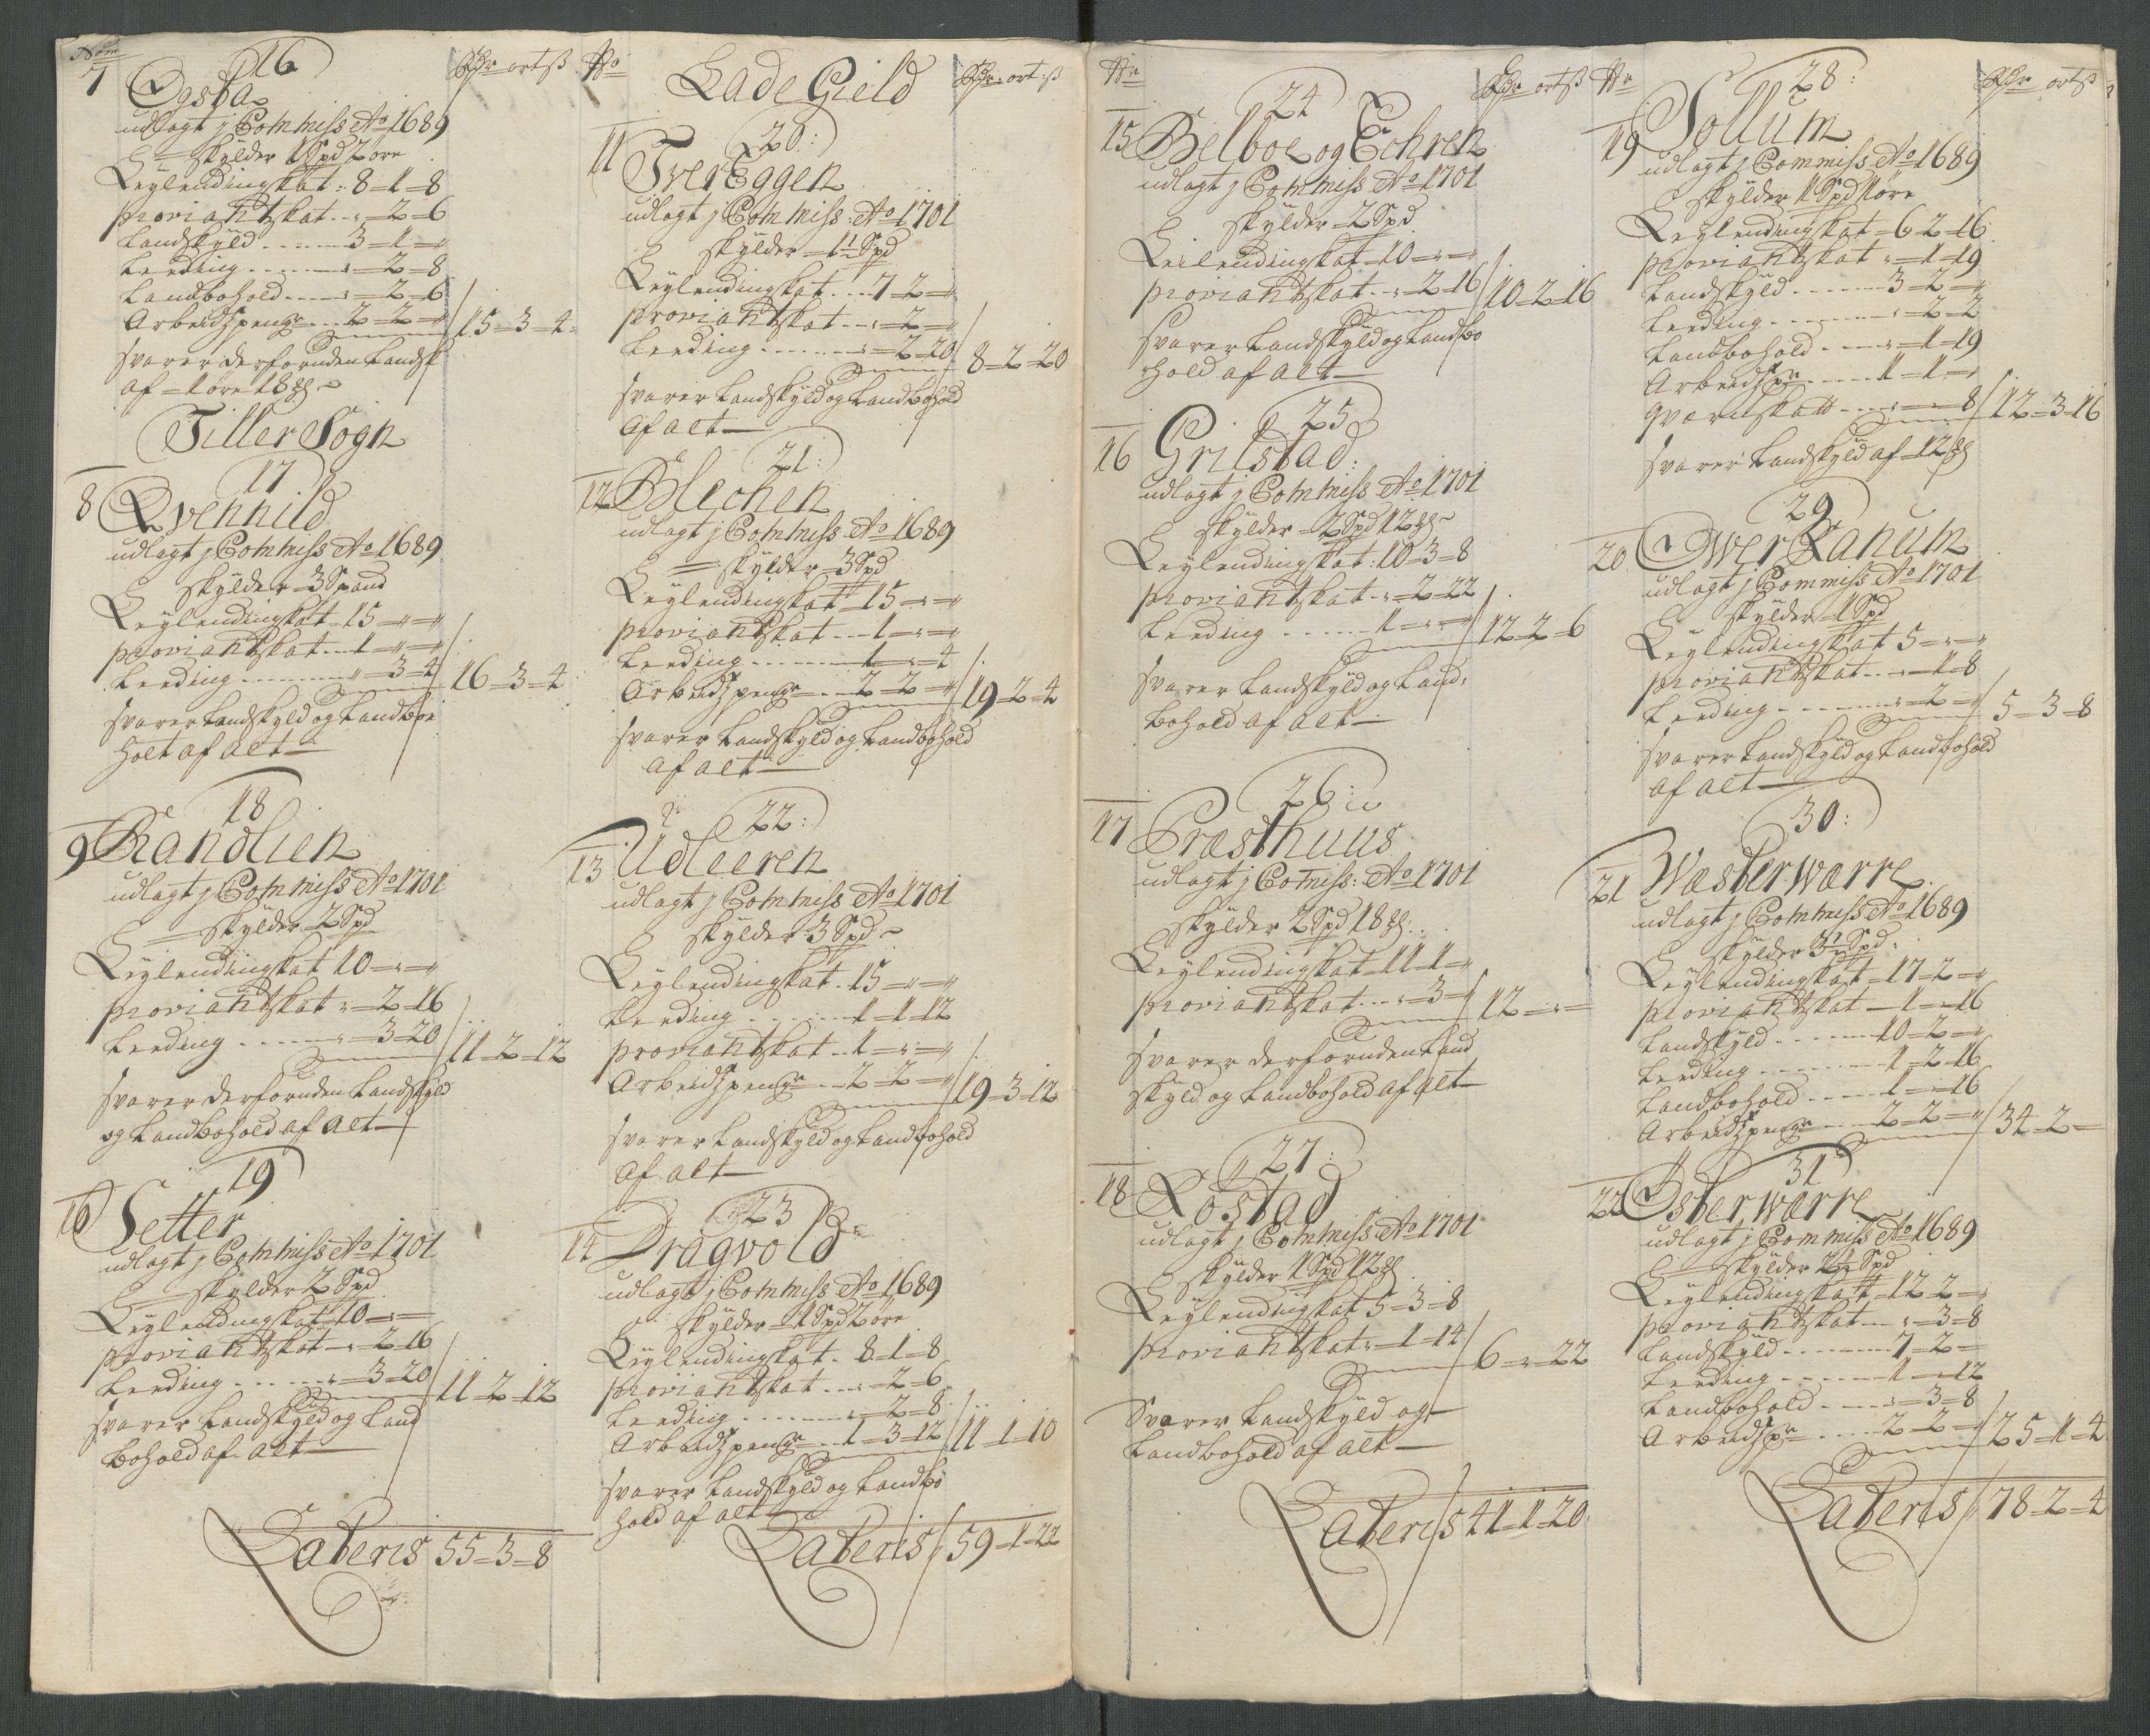 Nom
7
16
Rdr ort ß
Øgsta
udlagt j Commiss Ao 1689
skÿlder 1 Spd 2 öre
Leylendingskat: 8=1=8
proviantskat..„=2=6
Landskÿld......3=1=„
Leeding......„=2=8
Landbohold....„=2=6
Arbeidzpenge...2=2=„ / 15=3=4
svarer derforuden Landsk
af=1 öre 18
Tiller Sogn
17
8 Qvennild
udlagt j Commiss Ao 1689
skÿlder=3 Spand
Leylendingskat 15=„=„
proviantskat...1=„=„
Leeding.......„=3=4 / 16=3=4
svarer Landskyld og Landboe
holt af alt
18
9 Randlien
udlagt j Commiss Ao 1701
skÿlder 2 Spd
Leÿlendingskat 10=„=„
proviantskat „=2=16
Leeding......„=3=20 / 11=2=12
svarer derforuden Landskÿld
og Landbohold af alt
19
10 Setter
udlagt j Commiss Ao 1701
skÿlder 2 Spd
Leÿlendingskat 10=„=
proviantskat=„2=16
Leeding......„=3=20 / 11=2=12
svarer Landskÿld og Land
bohold af alt
Lateris 55=3=8
No
Lade Gield
Rdr: ort: ß
20:
11 Tver Eggen
udlagt j Commiss: Ao 1701
skÿlder=1½ Spd
Leÿlendingskat...7=2=„
proviantskat...„=2=„
Leeding.......„=2=20 / 8=2=20
svarer Landskÿld og Landbohold
af alt
21:
12 Blechen
udlagt j Commiss Ao 1689
skÿlder=3 Spd
Leÿlendingskat 15=„=„
proviantskat...1=„=„
Leeding........1=„=4
Arbeidzpenge...2=2=„ / 19=2=4
svarer Landskÿld og Landbohold
af alt
22:
13 Udleeren
udlagt j Commiss Ao 1701
skÿlder 3 Spd
Leÿlendingskat. 15=„=„
Leeding.......1=1=12
proviantskat..1=„=„
Arbeidzpenge...2=2=„ / 19=3=12
svarer Landskÿld og Landbohold
af alt
23
14 Dragvold
udlagt j Commiss Ao 1689
skÿlder=1 Spd 2 öre
Leÿlendingskat. 8=1=8
proviantskat...„=2=6
Leeding.......„=2=8
Arbeidzpenge..1=3=12 / 11=1=10
svarer Landskÿld og Landbo
hold af alt
Lateris / 59=1=22
No
24
Rdr ort ß
15 Belboe og Echren
udlagt j Commiss Ao 1701
skÿlder=2 Spd
Leilendingskat=10=„=„
proviantskat..„=2=16 / 10=2=16
svarer Landskÿld og Landbo
hold af alt
25
16 Grilstad:
udlagt j Commiss Ao 1701
skÿlder=2 Spd 12
Leÿlendingskat: 10=3=8
proviantskat..„=2=22
Leeding......1=„=„ / 12=2=6
svarer Landskÿld og Land:
bohold af alt
26:
17 Præsthuus
udlagt j Comiss: Ao 1701
skÿlder 2 Spd 18
Leÿlendingskat=11=1=„
proviantskat....„=3=„ / 12=„=
svarer derforuden Land
skÿld og Landbohold af alt
27:
18 Rostad
udlagt j Commiss Ao 1701
skÿlder 1 Spd 12
Leÿlendingskat 5=3=8
proviantskat „=1=14 / 6=„=22
Svarer Landskÿld og
Landbohold af alt
Lateris 41=1=20
No
28:
Rdr ort ß
19 Sollum
udlagt j Commiss Ao 1689
skÿlder 1 Spd 1 öre
Leÿlendingskat=6=2=16
proviantskat „=1=19
Landskÿld......3=2=„
Leeding.......„=2=2
Landbohold....„=1=19
Arbeidzpe......1=1=„
qvarnskatt...„=„=8 / 12=3=16
svarer Landskÿld af=12
29
20 Ower Ranum
udlagt j Commiss Ao 1701
skÿlder=1 Spd
Leÿlendingskat 5=„=„
proviantskat...„=1=8
Leeding.......„=2=„ / 5=3=8
svarer Landskÿld og Landbohold
af alt
30:
21 Wæster Wærre
udlagt j Commiss Ao 1689
skÿlder 3½ Spd.
Leÿlendingskat=17=2=„
proviantskat=1=„=16
Landskÿld......10=2=„
Leeding.......1=2=16
Landbohold.....1=„=16
Arbeidzpenge....2=2=„ / 34=2=
31
22 Øster Wærre
udlagt j Commiss Ao 1689
skÿlder 2½ Spd
Leÿlendingskatt=12=2=„
proviantskat...„=3=8
Landskÿld.......7=2=
Leeding.......1=„=12
Landbohold....„=3=8
Arbeidzpe.....2=2=„ / 25=1=4
Lateris / 78=2=4